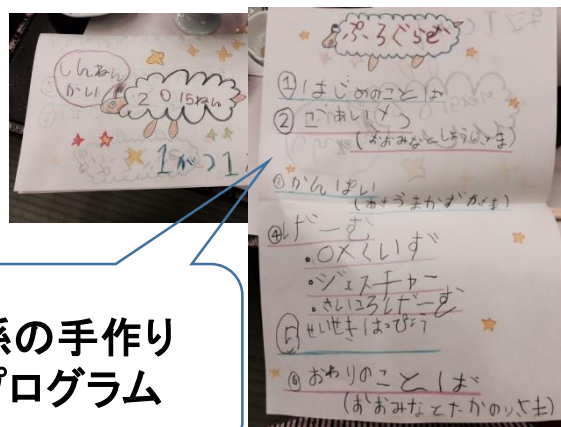 しんねん
かい!
2015ねん
1がつ1
ぷーろぐらむ
①はじめのことば
②ごあいさつ
(おおみなとしょうじさま)
かんぱい
④げーむ
・○×くいず
・ジェスチャー
・さいころげーむ
⑤せいせきはっぴょう
⑥おわりのことば
(おおみなとたかのりさま)
の手作り
プログラム